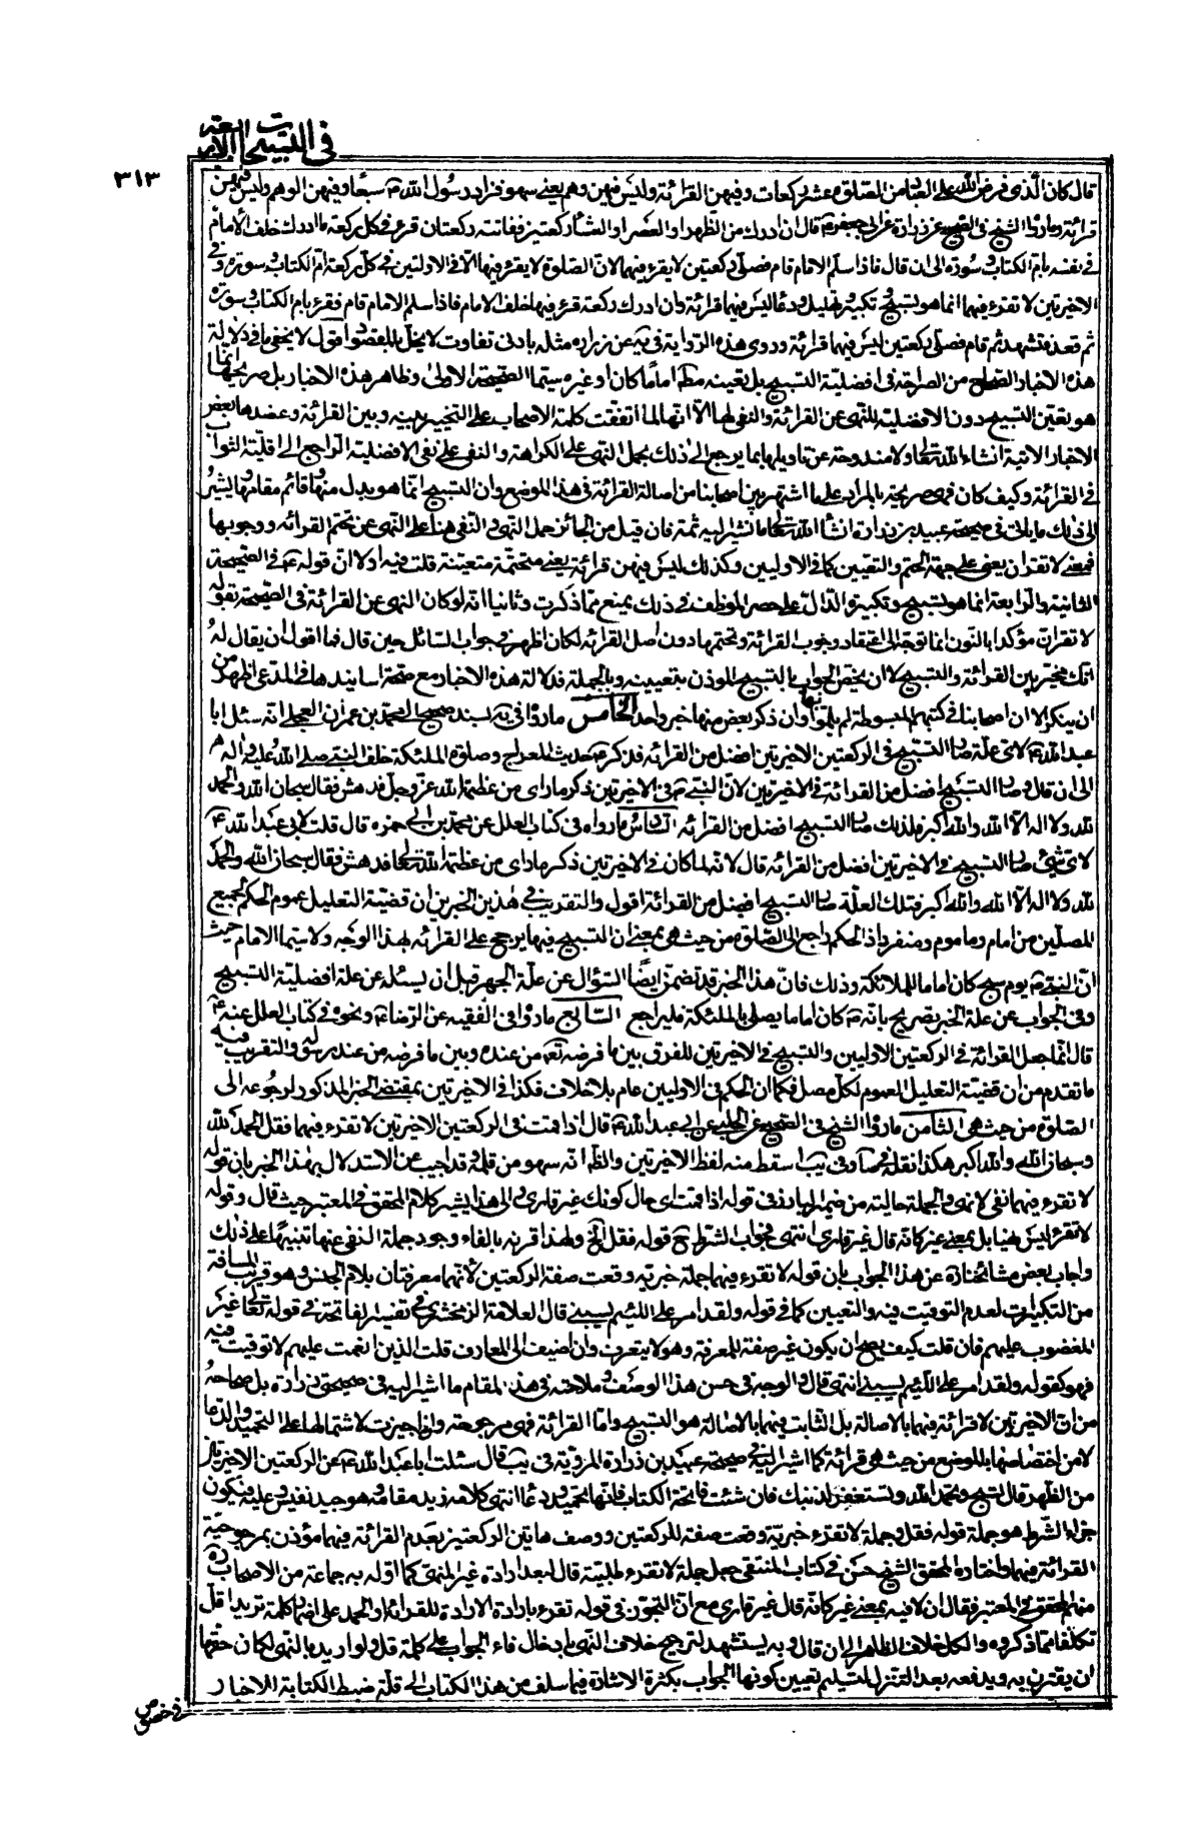 في التسبيحات الأربعة
٣١٣
قال كان الذي فرض الله على العباد من الصلوة عشر ركعات وفيهن القرائة وليس فيهن وهم يعني سهو فزاد رسول الله ص سبعًا وفيهن الوهم وليس فيهن
قرائة وما رواه الشيخ في الصحيح عن زرارة عن ابي جعفر ع قال ان ادرك من الظهر او العصر او العشاء ركعتين وفاتته ركعتان قرء في كل ركعة مما ادرك خلف الامام
في نفسه بام الكتاب وسورة الى ان قال فاذا سلم الامام قام فصلى ركعتين لا يقرء فيهما لان الصلوة لا يقرء فيها الا في الاولتين في كل ركعة ام الكتاب وسورة وفي
الاخيرتين لا تقرء فيهما انما هو تسبيح وتكبير وتهليل ودعا ليس فيهما قرائة وان ادرك ركعة قرء فيها خلف الامام فاذا سلم الامام قام فقرء بام الكتاب وسورة
ثم قعد فتشهد ثم قام فصلى ركعتين ليس فيهما قرائة وروى هذه الرواية في يه عن زراره مثله بادنى تفاوت لا يخل بالمقصود اقول لا يخفى ما في دلالة
هذه الاخبار الصحاح من الصراحة في افضلية التسبيح بل تعينه مطم اماما كان او غيره سيما الصحيحة الاولى وظاهر هذه الاخبار بل صريحها انما
هو تعين التسبيح دون الافضلية للنهى عن القرائة والنفي لها الا انها لما اتفقت كلمة الاصحاب على التخيير بينه وبين القرائة وعضدها بعض
الاخبار الاتية انشاء الله تعالى ولا مندوحة عن تاويلها بما يرجع الى ذلك بحمل النهى على الكراهة والنفي على نفى الافضلية الراجع الى اقلية الثواب
في القرائة وكيف كان فهى صريحة بالمراد على ما اشتهر بين اصحابنا من اصالة القرائة في هذا الموضع وان التسبيح انما هو بدل منها وقائم مقامها ويشير
الى ذلك ما ياتي في صحيحة عبيد بن زرارة انشاء الله تعالى كما نشير اليه ثمة فان قيل من الجائز حمل النهى والنفي هنا على النهى عن تحتم القرائة ووجوبها
فمعنى لا تقران يعنى على جهة الحتم والتعيين كما في الاوليين وكذلك ليس فيهن قرائة يعنى متحتمة متعينة قلت فيه اولا ان قوله ع في الصحيحة
الثانية والرابعة انما هو تسبيح وتكبير الدال على حصر الموظف في ذلك يمنع مما ذكرت وثانيا انه لو كان النهى عن القرائة في الصحيحة بقوله
لا تقران مؤكدا بالنون انما توجه الى اعتقاد وجوب القرائة وتحتمها دون اصل القرائة لكان اظهر في جواب السائل حين قال فما اقول ان يقال له
انك مخير بين القرائة والتسبيح لا ان يخص الجواب بالتسبيح المؤذن بتعيينه وبالجملة فدلالة هذه الاخبار مع صحة اسانيدها في المدعى اظهر من
ان ينكر الا ان اصحابنا في كتبهم المبسوطة لم يلموا بها وان ذكر بعض منها خبر واحد الخامس ما رواه في يه بسند صحيح الى محمد بن عمران العجلي انه سئل ابا
عبد الله ع لاى علة صار التسبيح في الركعتين الاخيرتين افضل من القرائة فذكر ع حديث المعراج وصلوة الملئكة خلف النبي صلى الله عليه واله
الى ان قال وصار التسبيح افضل من القرائة في الاخيرتين لان النبي ص في الاخيرتين ذكر ما راى من عظمة الله عز وجل فدهش فقال سبحان الله والحمد
لله ولا اله الا الله والله اكبر فلذلك صار التسبيح افضل من القرائة السادس ما رواه في كتاب العلل عن محمد بن ابى حمزه قال قلت لابى عبد الله ع
لاى شئ صار التسبيح في الاخيرتين افضل من القرائة قال لانه لما كان في الاخيرتين ذكر ما راى من عظمة الله تعالى فدهش فقال سبحان الله والحمد
لله ولا اله الا الله والله اكبر فتلك العلة صار التسبيح افضل من القرائة اقول والتقريب في هذين الخبرين ان قضية التعليل عموم الحكم لجميع
المصلين من امام وماموم ومنفرد اذ الحكم راجع الى الصلوة من حيث هي بمعنى ان التسبيح فيها يرجح على القرائة لهذا الوجه ولا سيما الامام حيث
ان النبى ص يومئذ كان اماما للملائكة وذلك فان هذا الخبر قد تضمن ايضا السؤال عن علة الجهر قبل ان يسئله عن علة افضلية التسبيح
وفي الجواب عن علة الخبر تصريح بانه ص كان اماما يصلى بالملئكة فليراجع السابع ما رواه في الفقيه عن الرضا ع ونحوه في كتاب العلل عنه ع
قال انما جعل القرائة في الركعتين الاوليين والتسبيح في الاخيرتين للفرق بين ما فرضه تعم من عنده وبين ما فرضه من عند رسوله والتقريب فيه
ما تقدم من ان قضية التعليل العموم لكل مصل فكما ان الحكم في الاوليين عام بلا خلاف فكذا في الاخيرتين بمقتضى الخبر المذكور لرجوعه الى
الصلوة من حيث هي الثامن ما رواه الشيخ في الصحيح عن الحلبي عن ابى عبد الله ع قال اذا قمت في الركعتين الاخيرتين لا تقرء فيهما فقل الحمد لله
وسبحان الله والله اكبر هكذا نقله في صا وفي يب اسقط منه لفظ الاخيرتين والظ انه سهو من قلمه وقد اجيب عن الاستدلال بهذا الخبر بان قوله
لا تقرء فيهما نفي لا نهى والجملة حالية من ضمير البارز في قوله اذا قمت اى حال كونك غير قارى والى هذا يشير كلام المحقق في المعتبر حيث قال وقوله
لا تقرء ليس نهيا بل بمعنى غير كانه قال غير قارى انتهى فجواب الشرط ح قوله فقل الخ ولهذا قرنه بالفاء وجود جملة النفي عنها تنبيها على ذلك
واجاب بعض مشائخنا ره عن هذا الجواب بان قوله لا تقرء فيهما جملة خبرية وقعت صفة الركعتين لانهما معرفتان بلام الجنس وهو قريب المسافة
من النكرات لعدم التوقيت فيه والتعيين كما في قوله ولقد امر على اللئيم يسبنى قال العلامة الزمخشرى في تفسير الفاتحة في قوله تعالى غير
المغضوب عليهم فان قلت كيف يصح ان يكون غير صفة للمعرفة وهو لا يتعرف وان اضيف الى المعارف قلت الذين انعمت عليهم لا توقيت فيه
فهو كقوله ولقد امر على اللئيم يسبنى انتهى قال والوجه في حسن هذا الوصف وملاحته في هذ المقام ما اشير اليه في صحيحتى زرارة بل صحاحه
من ان الاخيرتين لا قرائة فيهما بالاصالة بل الثابت فيهما بالاصالة هو التسبيح واما القرائة فهى مرجوحة وان اجيزت لاشتمالها على التحميد والدعا
لا من اختصاصها بالموضع من حيث هي قرائة كما اشير اليه في صحيحة عبيد بن زرارة المروية في يب قال سئلت ابا عبد الله ع عن الركعتين الاخيرتين
من الظهر قال تسبح وتحمد الله وتستغفر لذنبك فان شئت فاتحة الكتاب فانها تحميد ودعا انتهى كلامه زيد مقامه وهو جيد نفيس وعليه فيكون
جزاء الشرط هو جملة قوله فقل وجملة لا تقرء خبرية وقعت صفة للركعتين ووصف هاتين الركعتين بعدم القرائة فيهما مؤذن بمرجوحية
القرائة فيهما واختاره المحقق الشيخ حسن في كتاب المنتقى جعل جملة لا تقرء طلبية قال لبعد ارادة غير المنهى كما اوله به جماعة من الاصحاب ره
منهم المحقق في المعتبر فقال ان لا فيه بمعنى غير كانه قال غير قارى مع ان التجوز في قوله تقرء بارادة الارادة للقرائة او الحمل على انهما كلمة تريد اقل
تكلفا مما ذكروه والكل خلاف الظاهر الى ان قال وبه يستشهد لترجيح خلاف النهى بادخال فاء الجواب على كلمة قل ولو اريد بالنهى لكان حقها
ان يقترن به ويدفعه بعد التنزل لتسليم تعيين كونها للجواب بكثرة الاشارة فيما سلف من هذا الكتاب الى قلة ضبط الكتابة للاخبار
في خصوص